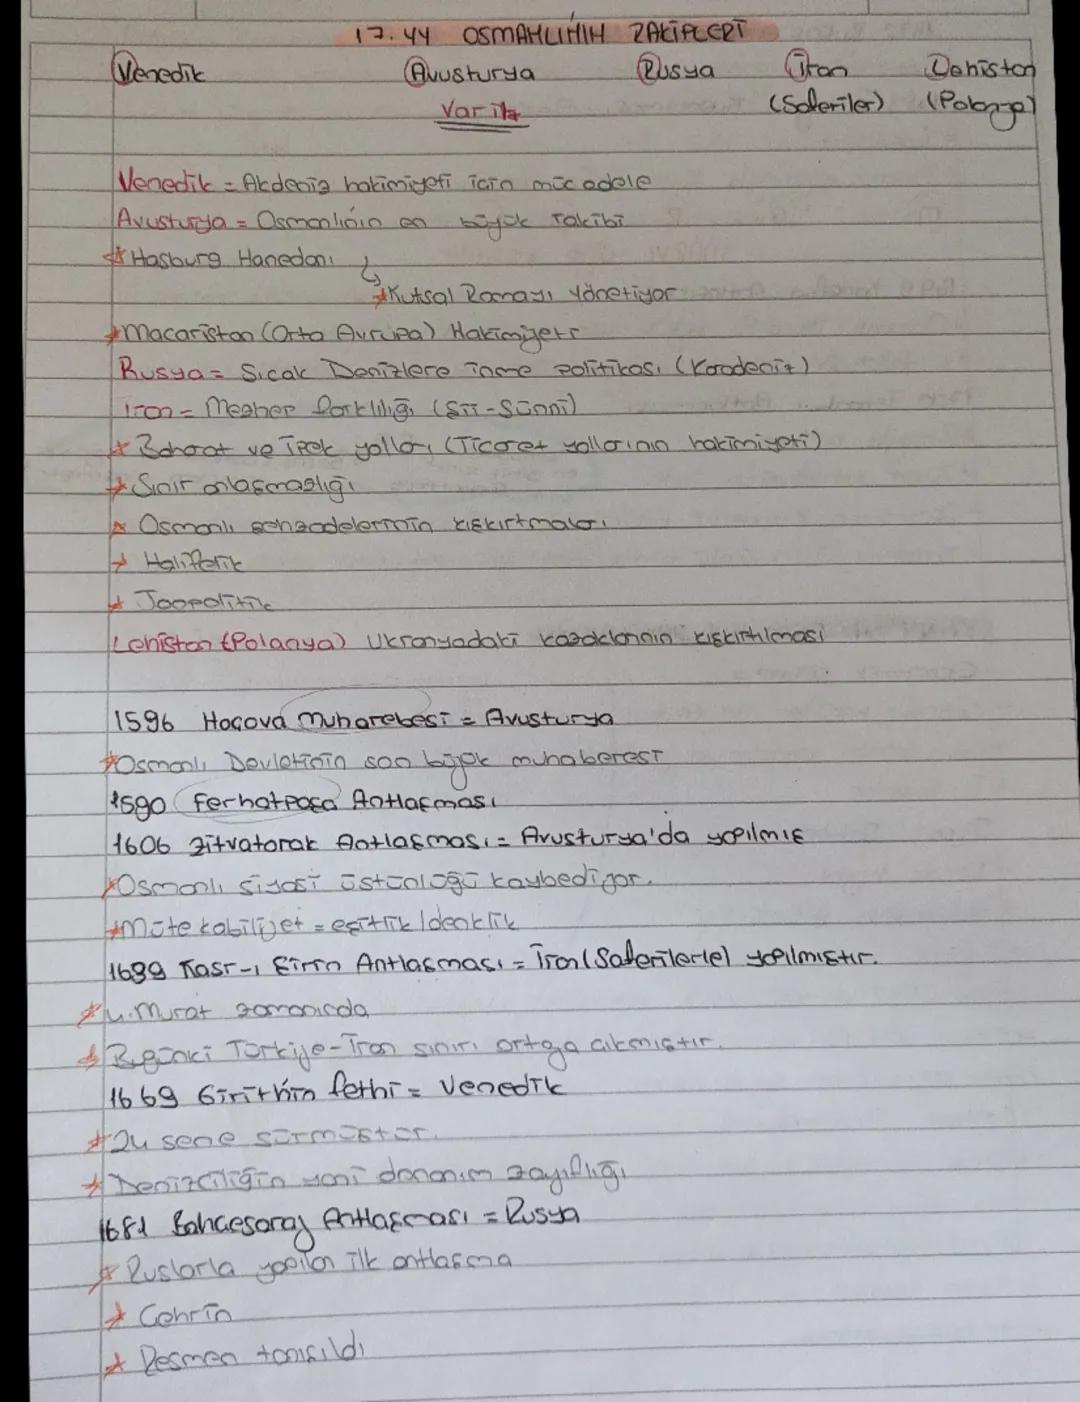 17.44 OSMANLININ RAKİPLERİ
Venedik Avusturya Rusya İran Lehistan
VarİL (Safeviler) (Polonya)
Venedik = Akdeniz hakimiyeti için mücadele
Avusturya = Osmanlının en büyük rakibi
* Hasburg Hanedanı
* Kutsal Romayı Yönetiyor
* Macaristan (Orta Avrupa) Hakimiyeti
Rusya = Sıcak Denizlere inme politikası (Karadeniz)
İran = Mezhep farklılığı (Şii-Sünni)
* Baharat ve İpek yolları (Ticaret yollarının hakimiyeti)
* Sınır anlaşmazlığı
* Osmanlı şehzadelerinin kışkırtmaları
* Halifelik
* Jeopolitik
Lehistan (Polanya) Ukranyadaki kazakların kışkırtılması
1596 Haçova Muharebesi = Avusturya
* Osmanlı Devletinin son büyük muhaberesi
1590 Ferhatpaşa Antlaşması
1606 Zitvatorak Antlaşması = Avusturya'da yapılmış
* Osmanlı siyasi üstünlüğü kaybediyor.
* Mütekabiliyet = eşitlik / denklik
1639 Kasr-ı Şirin Antlaşması = İran (Safevilerle) yapılmıştır.
* 4. Murat zamanında
* Bugünkü Türkiye-İran sınırı ortaya çıkmıştır.
1669 Girit'in fethi = Venedik
* 24 sene sürmüştür.
* Denizciliğin yani donanım zayıflığı
1681 Bahçesaray Antlaşması = Rusya
* Ruslarla yapılan ilk antlaşma
* Çehrin
* Resmen tanışıldı